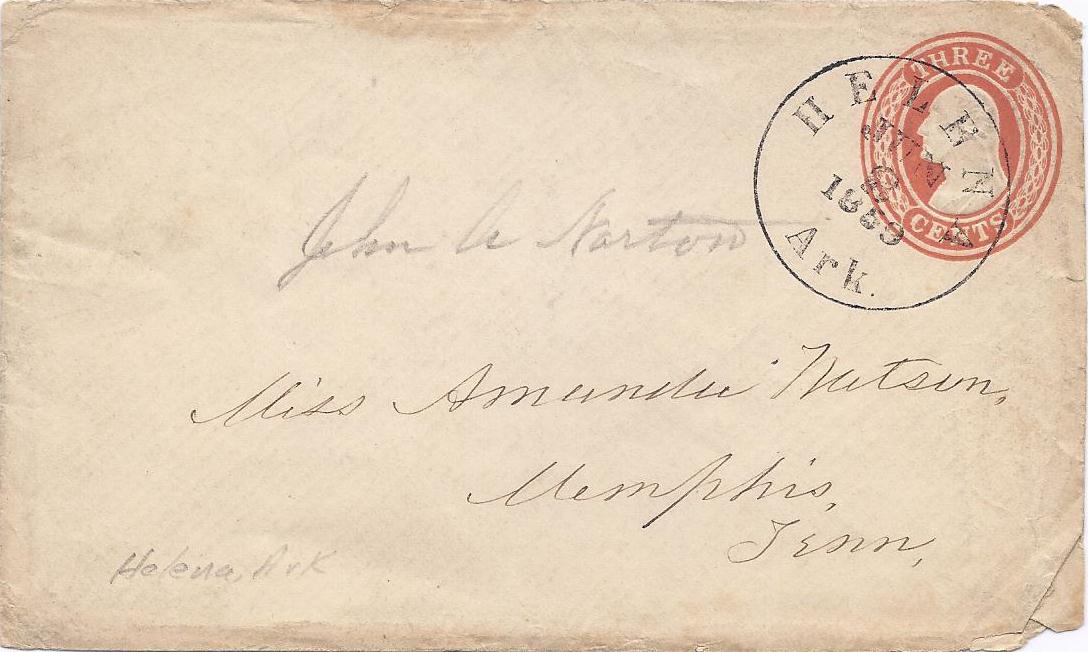 THREE
CENTS
HELENA
JUN
1859
Ark.
John A Norton
Miss Amanda Watson,
Memphis,
Tenn,
Helena, Ark